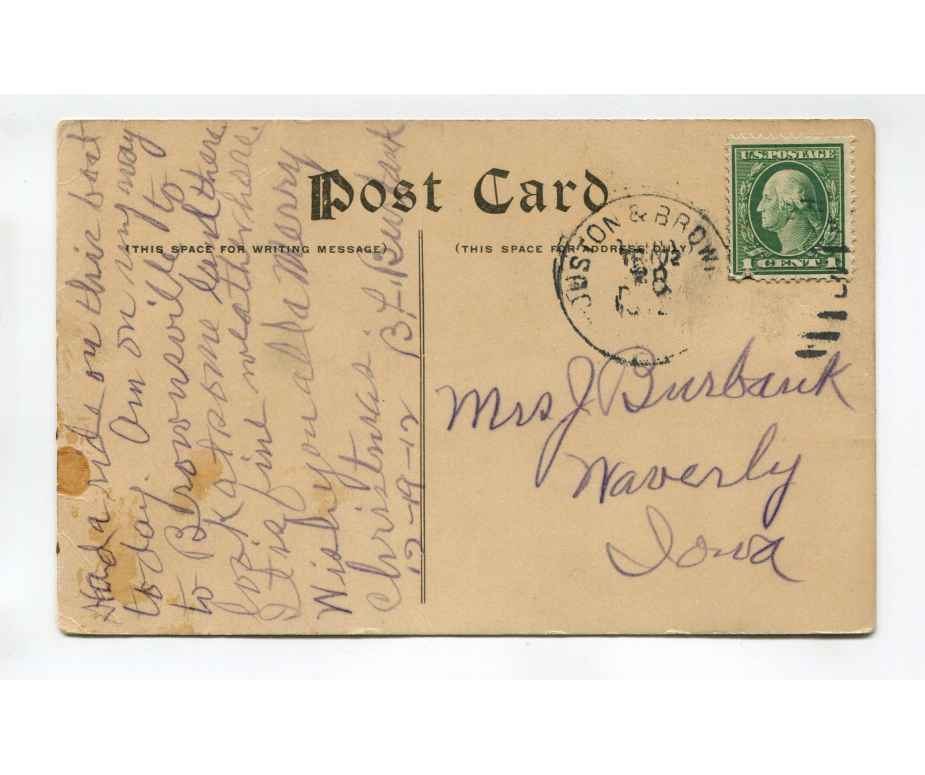 Post Card
(THIS SPACE FOR WRITING MESSAGE)
(THIS SPACE FOR ADDRESS ONLY)
U.S. POSTAGE
1 CENT 1
USTON & BROW
Had a ride on this boat
today. Am on my way
to Brownsville to
look at some land there.
It is fine weather here.
Wish you all a Merry
Christmas
12-19-12 B.F. Burbank
Mrs J Burbank
Waverly
Iowa